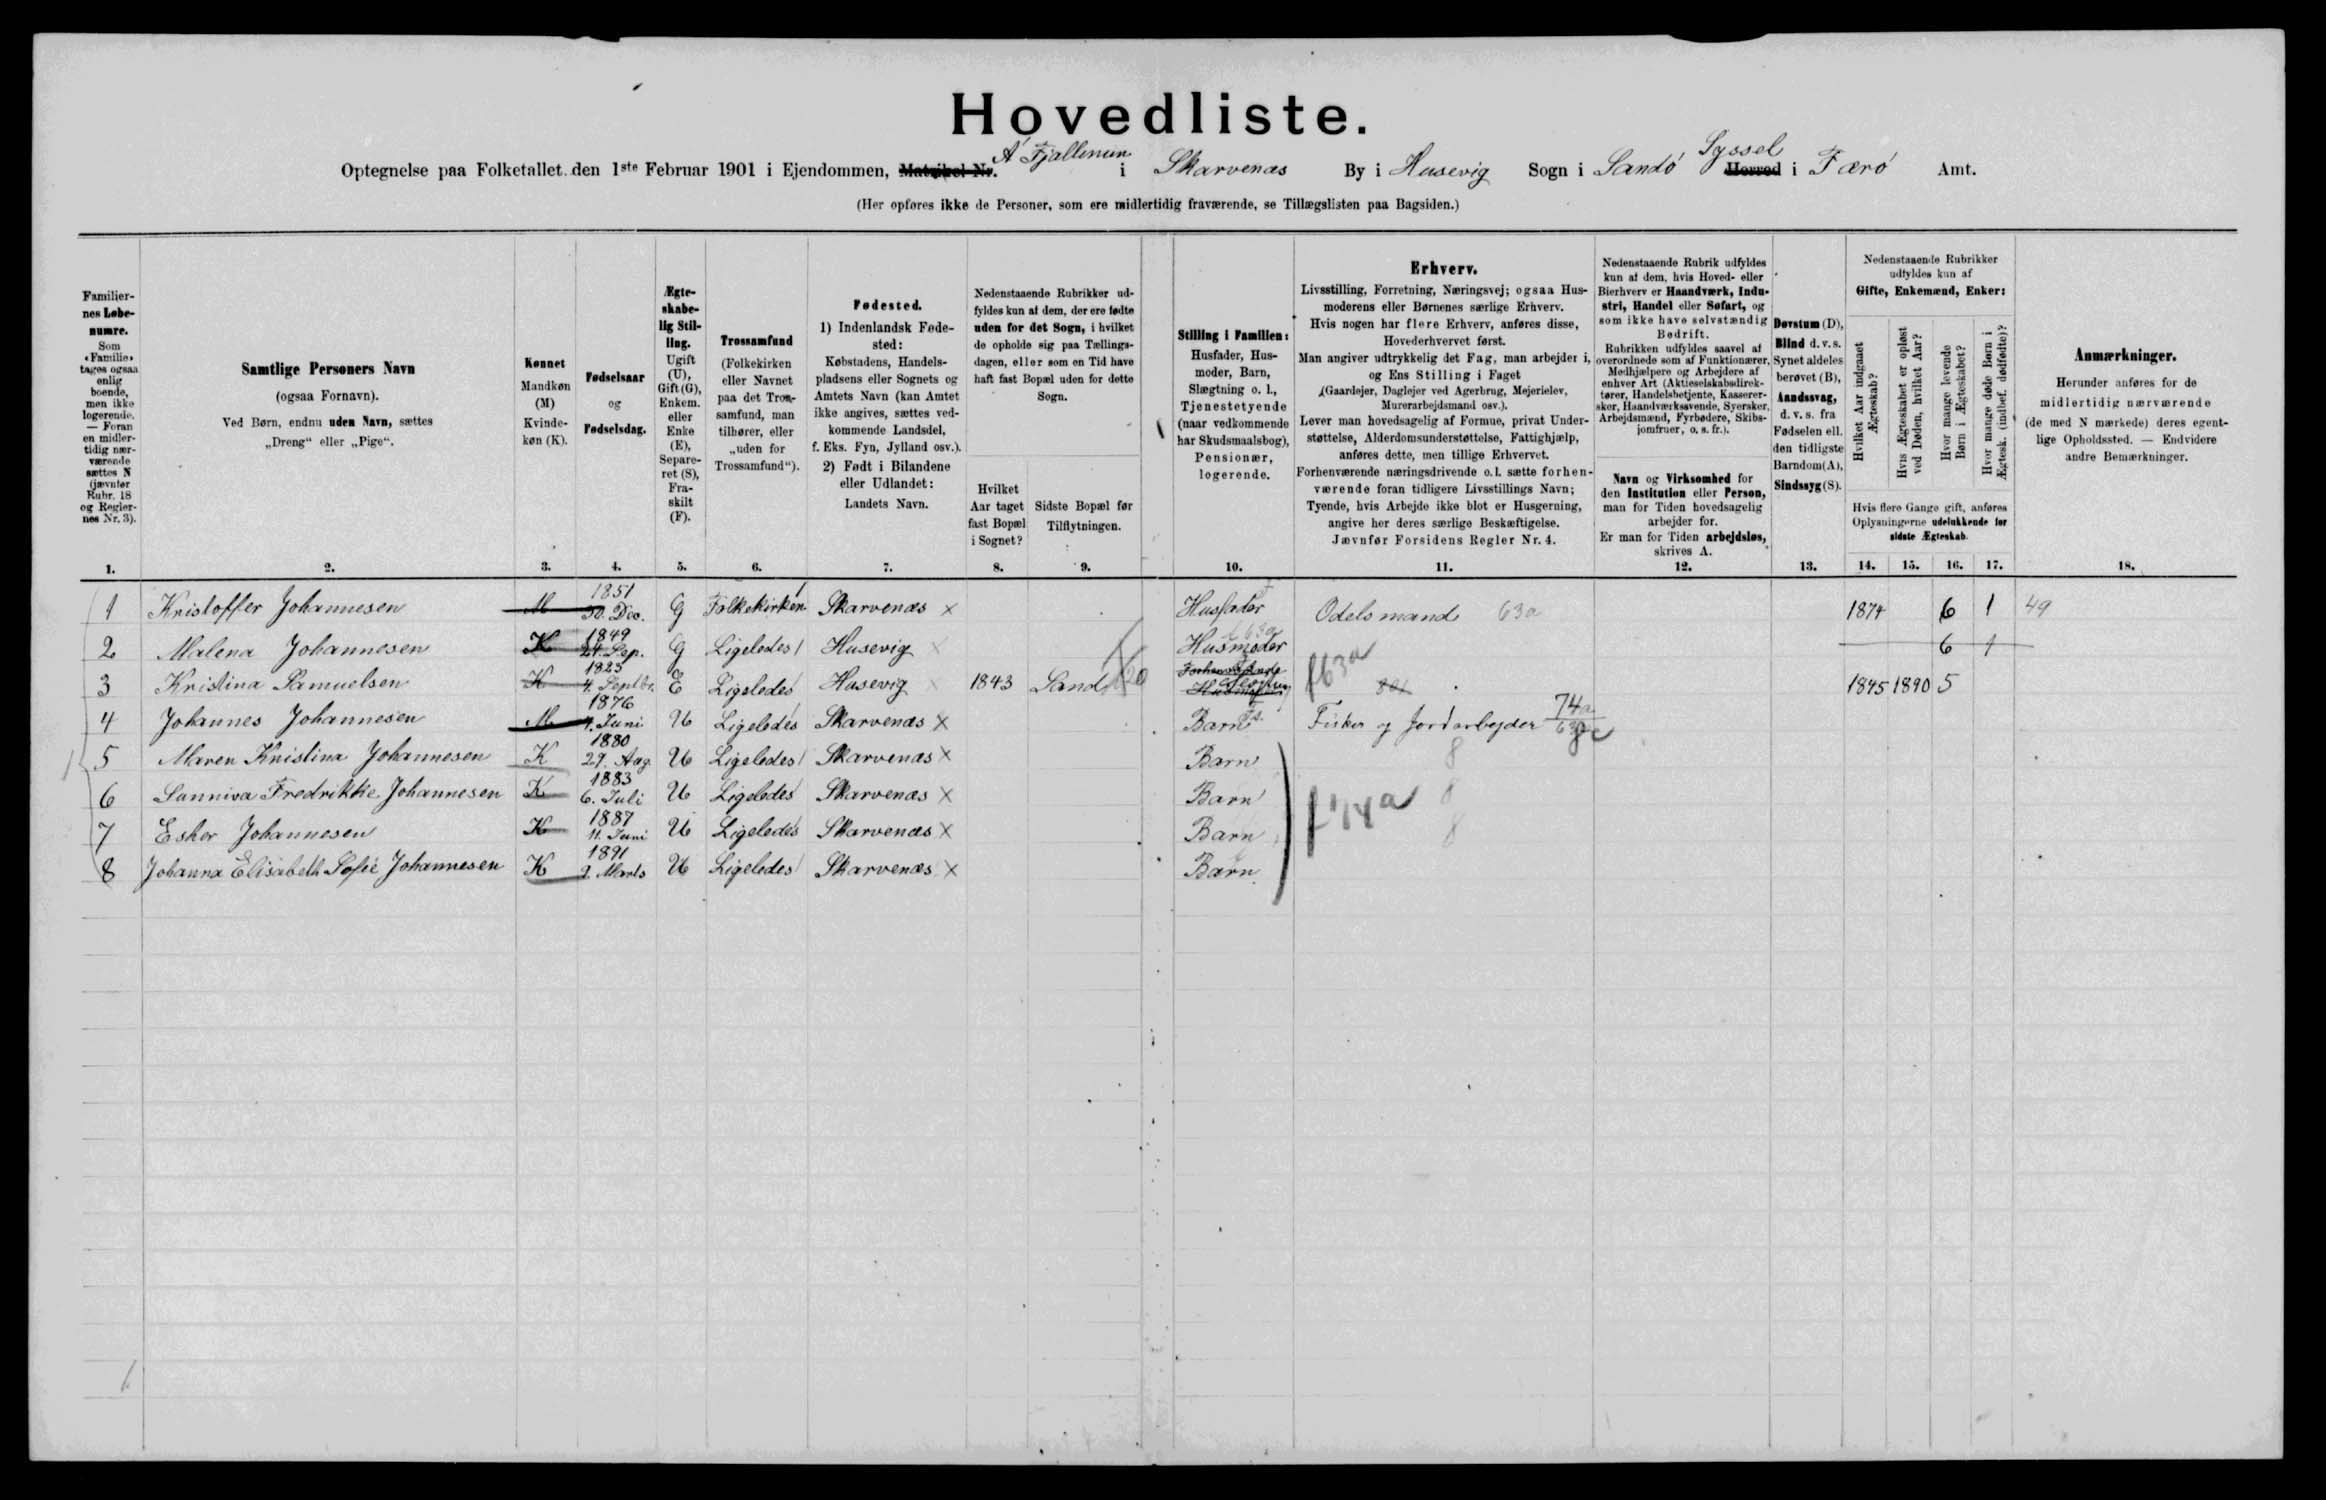 Hovedliste.
Optegnelse paa Folketallet den 1ste Februar 1901 i Ejendommen, Matrikel Nr. Á Fjallinum i Skarvenæs By i Husevig Sogn i Sandø Herred Syssel i Færø Amt.
(Her opføres ikke de Personer, som ere midlertidig fraværende, se Tillægslisten paa Bagsiden.)
Familiernes Løbenumre. Som «Familie» tages ogsaa enlig boende, men ikke logerende. — Foran en midlertidig nærværende sættes N (jævnfør Rubr. 18 og Reglernes Nr. 3).
Samtlige Personers Navn
(ogsaa Fornavn).
Ved Børn, endnu uden Navn, sættes
„Dreng“ eller „Pige“.
Kønnet
Mandkøn (M)
Kvindekøn (K).
Fødselsaar
og
Fødselsdag.
Ægteskabelig Stilling.
Ugift (U), Gift (G), Enkem. eller Enke (E), Separeret (S), Fraskilt (F).
Trossamfund
(Folkekirken eller Navnet paa det Trossamfund, man tilhører, eller „uden for Trossamfund“).
Fødested.
1) Indenlandsk Fødested:
Købstadens, Handelspladsens eller Sognets og Amtets Navn (kan Amtet ikke angives, sættes vedkommende Landsdel, f. Eks. Fyn, Jylland osv.).
2) Født i Bilandene eller Udlandet:
Landets Navn.
Nedenstaaende Rubrikker udfyldes kun af dem, der ere fødte uden for det Sogn, i hvilket de opholde sig paa Tællingsdagen, eller som en Tid have haft fast Bopæl uden for dette Sogn.
Hvilket Aar taget fast Bopæl i Sognet?
Sidste Bopæl før Tilflytningen.
Stilling i Familien:
Husfader, Husmoder, Barn, Slægtning o. l., Tjenestetyende (naar vedkommende har Skudsmaalsbog), Pensionær, logerende.
Erhverv.
Livsstilling, Forretning, Næringsvej; ogsaa Husmoderens eller Børnenes særlige Erhverv.
Hvis nogen har flere Erhverv, anføres disse, Hovederhvervet først.
Man angiver udtrykkelig det Fag, man arbejder i, og Ens Stilling i Faget
(Gaardejer, Daglejer ved Agerbrug, Mejerielev, Murerarbejdsmand osv.).
Lever man hovedsagelig af Formue, privat Understøttelse, Alderdomsunderstøttelse, Fattighjælp, anføres dette, men tillige Erhvervet.
Forhenværende næringsdrivende o. l. sætte forhenværende foran tidligere Livsstillings Navn;
Tyende, hvis Arbejde ikke blot er Husgerning, angive her deres særlige Beskæftigelse.
Jævnfør Forsidens Regler Nr. 4.
Nedenstaaende Rubrik udfyldes kun af dem, hvis Hoved- eller Bierhverv er Haandværk, Industri, Handel eller Søfart, og som ikke have selvstændig Bedrift.
Rubrikken udfyldes saavel af overordnede som af Funktionærer, Medhjælpere og Arbejdere af enhver Art (Aktieselskabsdirektører, Handelsbetjente, Kasserersker, Haandværkssvende, Syersker, Arbejdsmænd, Fyrbødere, Skibsjomfruer, o. s. fr.).
Navn og Virksomhed for den Institution eller Person, man for Tiden hovedsagelig arbejder for.
Er man for Tiden arbejdsløs, skrives A.
Døvstum (D), Blind d. v. s. Synet aldeles berøvet (B), Aandssvag, d. v. s. fra Fødselen ell. den tidligste Barndom (A), Sindssyg (S).
Nedenstaaende Rubrikker udfyldes kun af
Gifte, Enkemænd, Enker:
Hvilket Aar indgaaet Ægteskab?
Hvis Ægteskabet er opløst ved Døden, hvilket Aar?
Hvor mange levende Børn i Ægteskabet?
Hvor mange døde Børn i Ægtesk. (indbef. dødfødte)?
Hvis flere Gange gift, anføres Oplysningerne udelukkende for sidste Ægteskab.
Anmærkninger.
Herunder anføres for de midlertidig nærværende (de med N mærkede) deres egentlige Opholdssted. — Endvidere andre Bemærkninger.
1. 2. 3. 4. 5. 6. 7. 8. 9. 10. 11. 12. 13. 14. 15. 16. 17. 18.
1 Kristoffer Johannesen M 1851 30. Dec. G Folkekirken Skarvenæs Husfader Odelsmand 63a 1874 6 1 49
2 Malena Johannesen K 1849 24. Sep. G Ligeledes Husevig Husmoder 6 1
3 Kristina Samuelsen K 1823 4. Septbr. E Ligeledes Husevig 1843 Sand f63a 1845 1890 5
4 Johannes Johannesen M 1876 4. Juni U Ligeledes Skarvenæs Barn Fisker og Jordarbejder 74a
5 Maren Kristina Johannesen K 1880 29. Aug. U Ligeledes Skarvenæs Barn 8
6 Sunniva Fredrikke Johannesen K 1883 6. Juli U Ligeledes Skarvenæs Barn f74a 8
7 Ester Johannesen K 1887 11. Juni U Ligeledes Skarvenæs Barn 8
8 Johanna Elisabeth Sofie Johannesen K 1891 2. Marts U Ligeledes Skarvenæs Barn